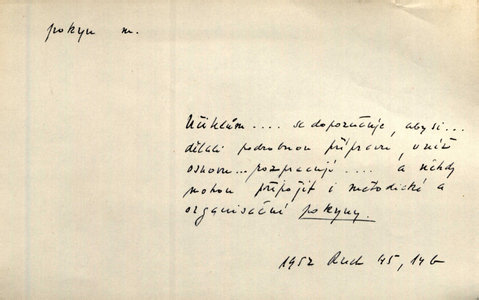 pokyn m.
Učitelům .... se doporučuje, aby si...
dělali podrobnou přípravu, v níž
osnovu... rozpracují .... a někdy
mohou připojit i metodické a
organisační pokyny.
1952 Rud 45, 146